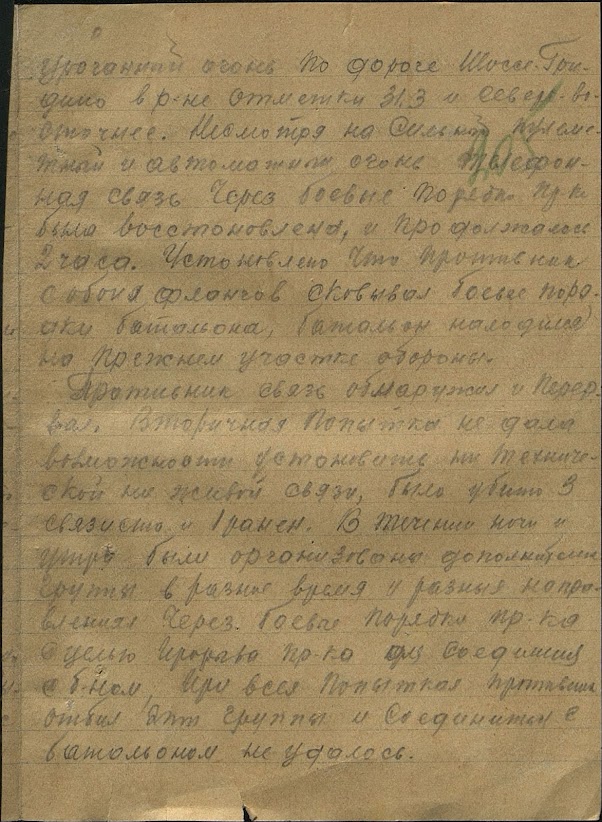 ураганный огонь по дороге Шоссе-Гри-
дино в р-не отметки 31.3 и северо-во-
сточнее. Несмотря на сильный пулеме-
тный и автоматный огонь телефон-
ная связь через боевые порядки пр-ка
была восстановлена, и продолжалась
2 часа. Установлено что противник
с обоих флангов сковывал боевые поря-
дки батальона, батальон находился
на прежнем участке обороны.
Противник связь обнаружил и перер-
вал. Вторичная попытка не дала
возможности установить ни техниче-
ской ни живой связи, было убито 3
связиста и 1 ранен. В течении ночи и
утра были организованы дополнительн
группы в разное время и разных напра-
влениях через боевые порядки пр-ка
с целью прорыва пр-ка для соединения
с б-ном, при всех попытках противник
отбил эти группы и соединиться с
батальоном не удалось.